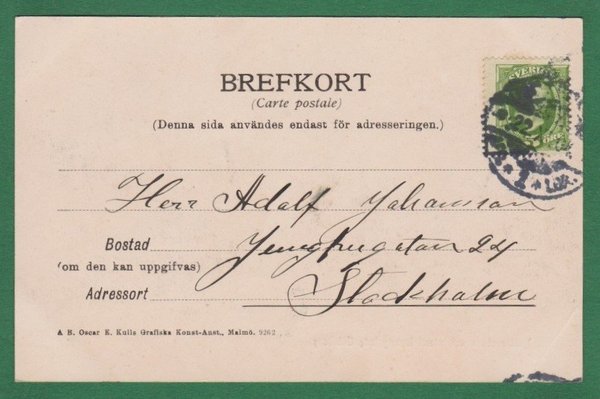 BREFKORT
(Carte postale)
(Denna sida användes endast för adresseringen.)
SVERIGE
22
1
LBR.
Herr Adolf Johansson
Bostad Jungfrugatan 24
(om den kan uppgifvas)
Adressort Stockholm
A B. Oscar E. Kulls Grafiska Konst-Anst., Malmö. 9262